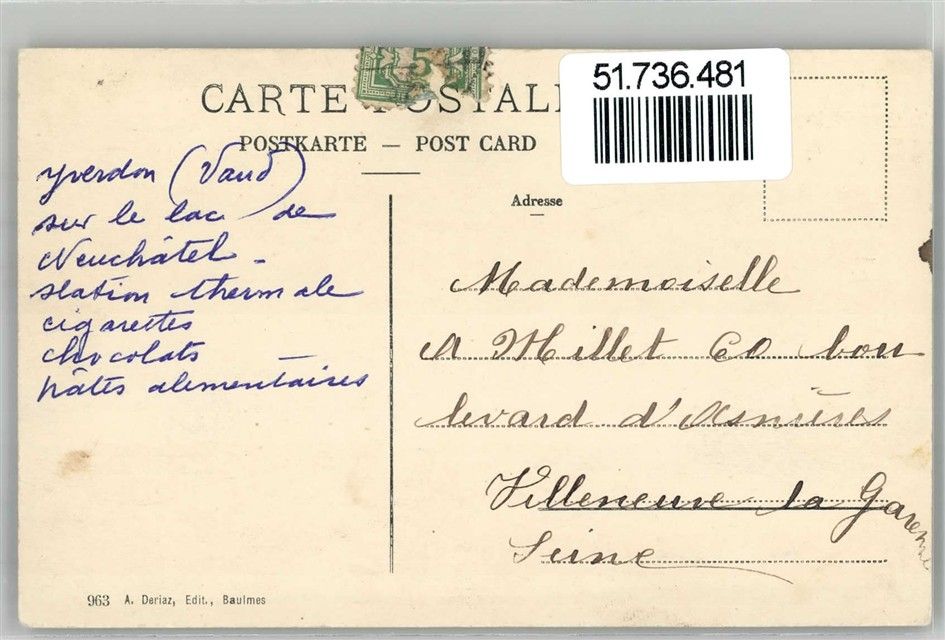 51.736.481
5
CARTE POSTAL
POSTKARTE — POST CARD
Adresse
yverdon (Vaud)
sur le lac de
Neuchâtel -
station thermale
cigarettes
chocolats
pâtes alimentaires
Mademoiselle
A Millet 60 bou
levard d'Asnières
Villeneuve la Garenne
Seine
963 A. Deriaz, Edit., Baulmes